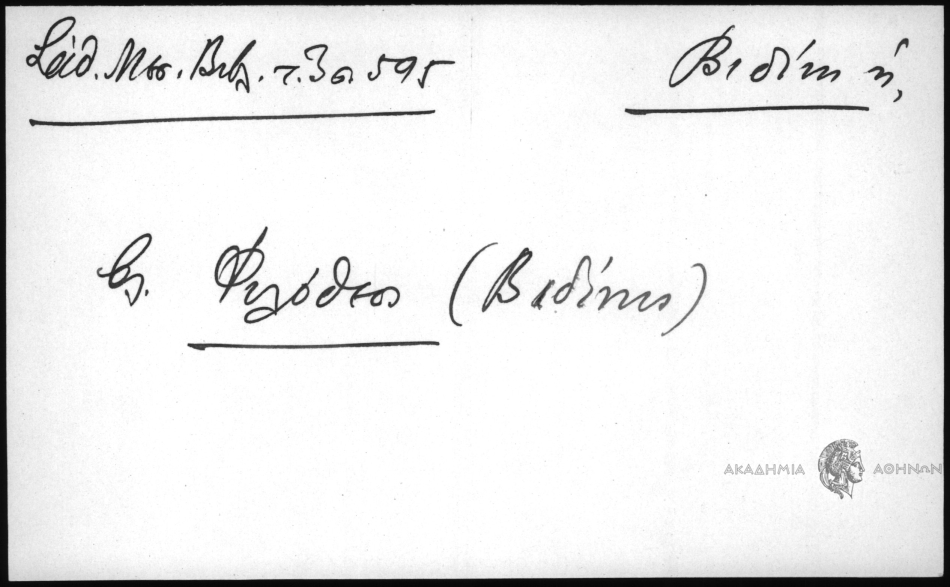 Σάθ. Μεσ. Βιβλ. τ. 3 σ. 595
Βιδίνη ἡ,
βλ. Φιλόθεος (Βιδίνης)
ΑΚΑΔΗΜΙΑ ΑΘΗΝΩΝ